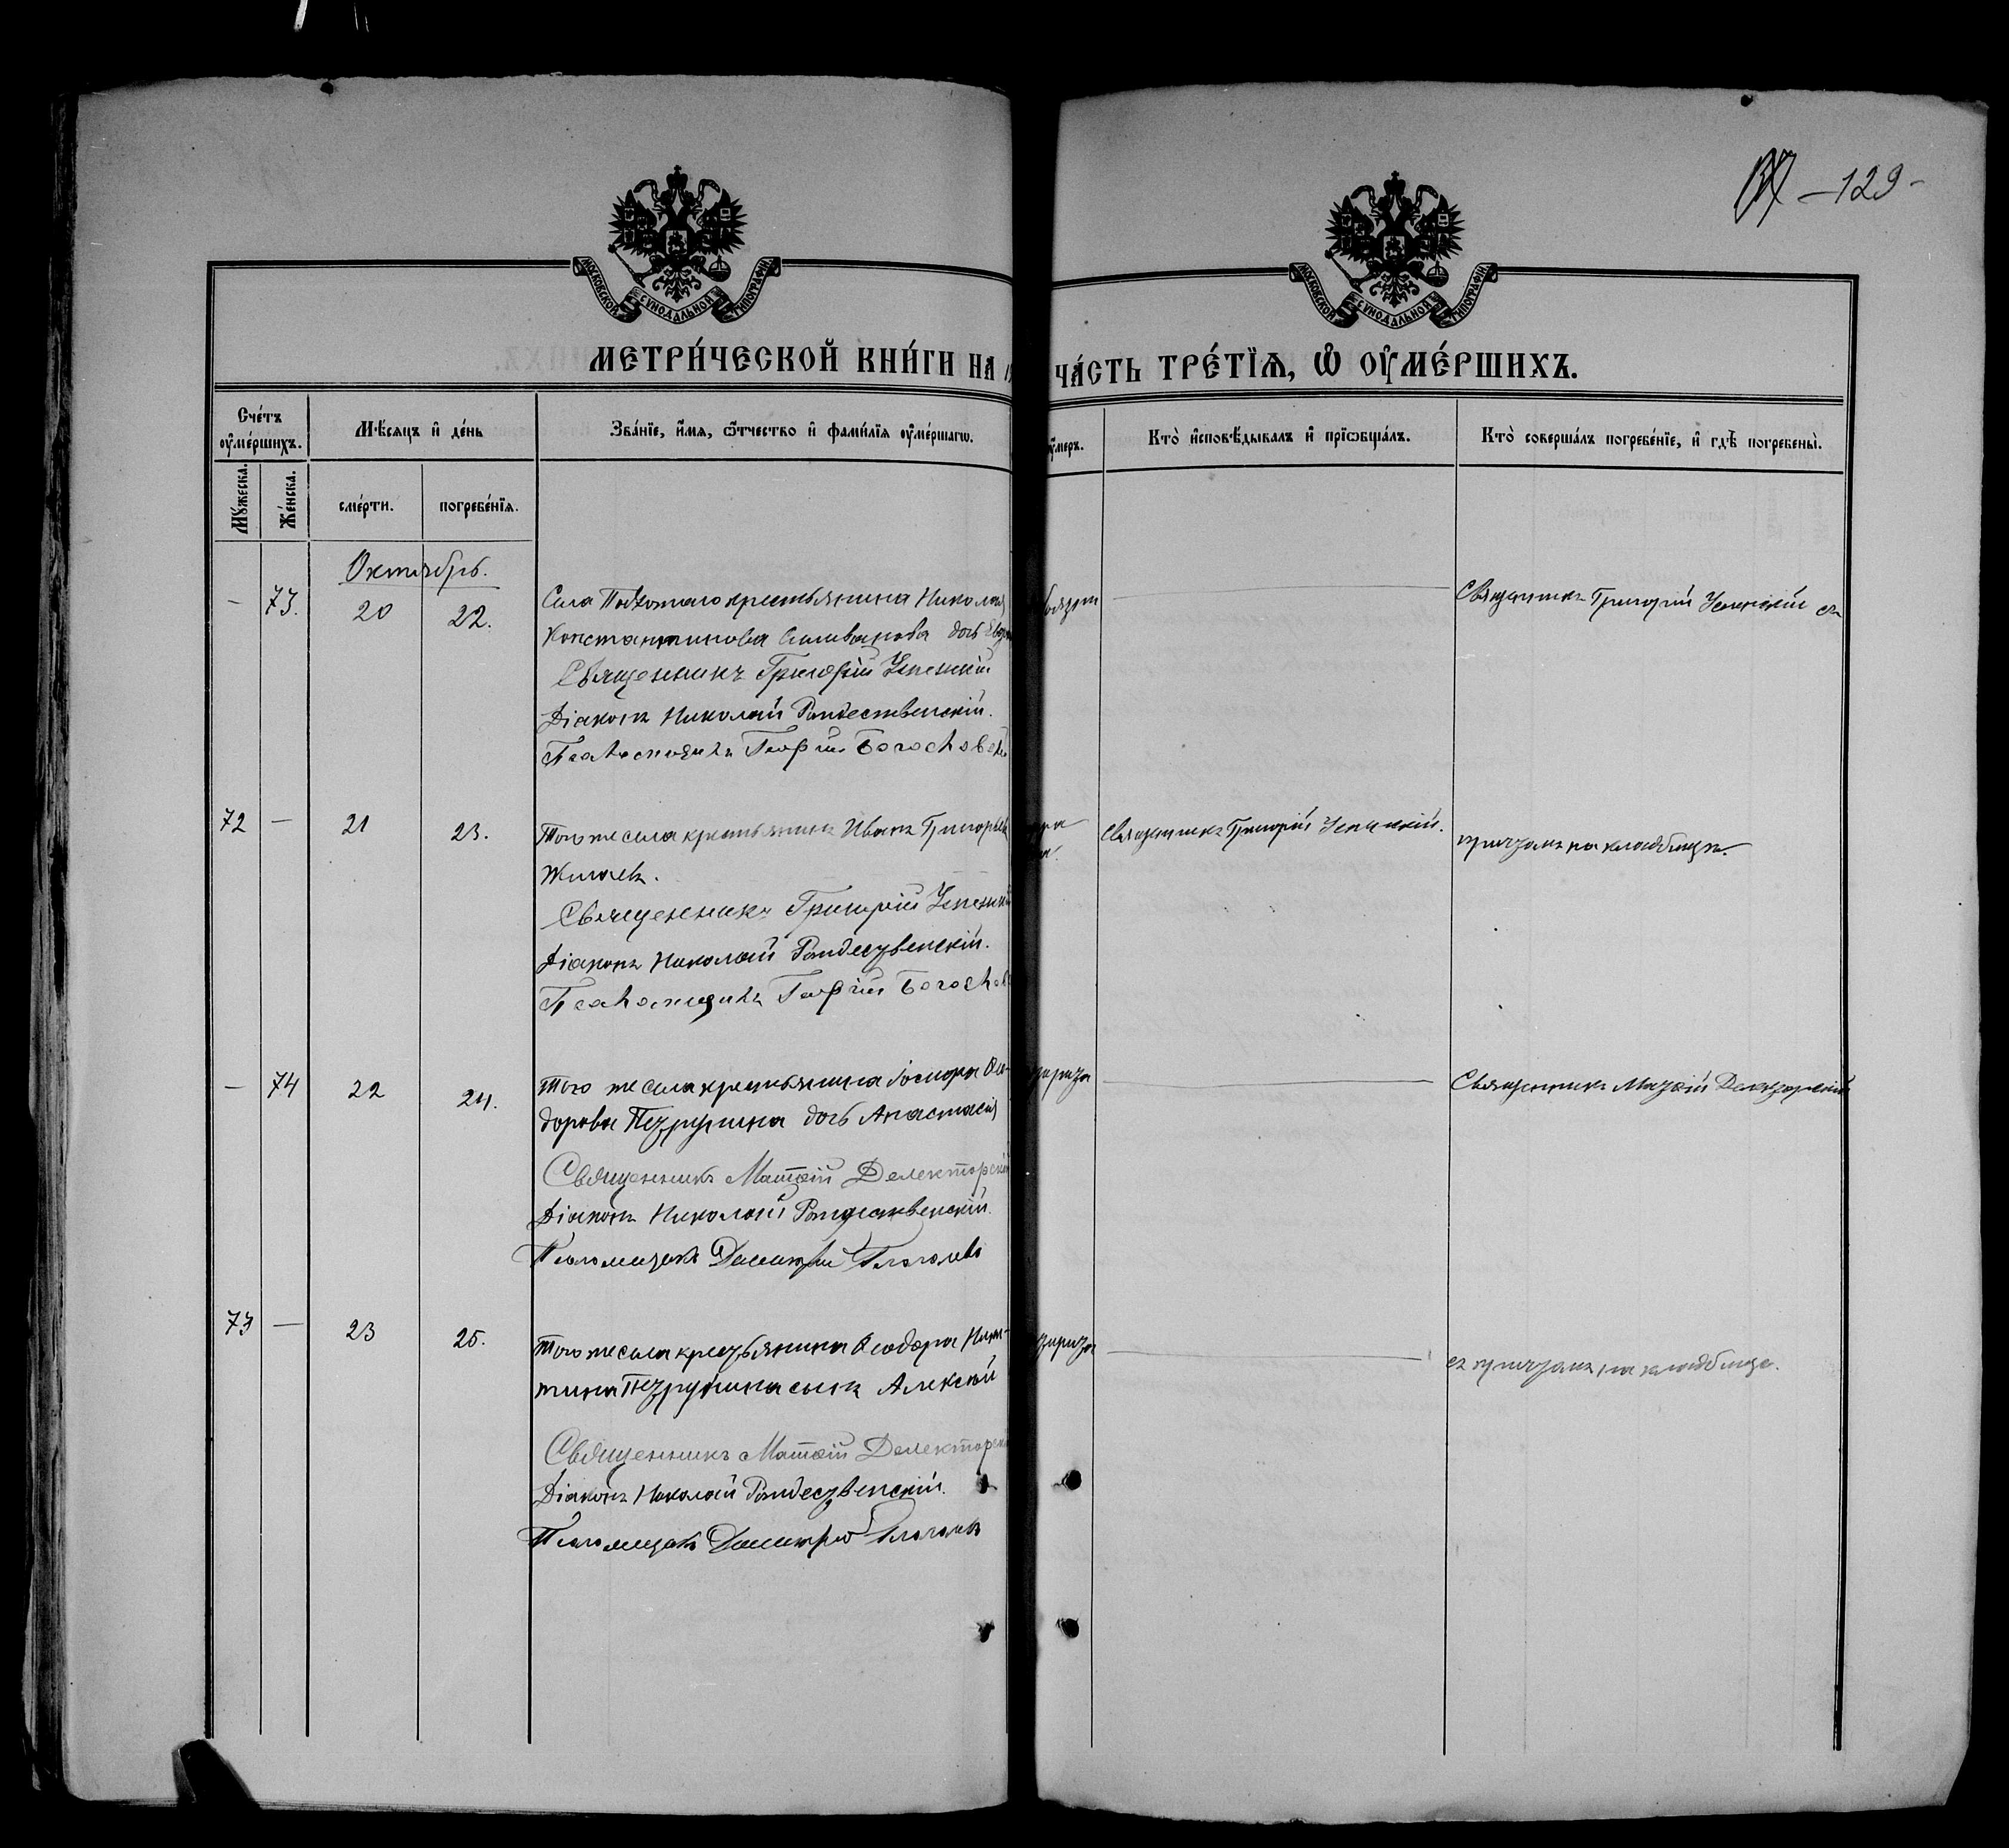 -129-
МОСКОВСКОЙ СѴНОДАЛЬНОЙ ТИПОГРАФІИ
МОСКОВСКОЙ СѴНОДАЛЬНОЙ ТИПОГРАФІИ
МЕТРИ́ЧЕСКОЙ КНИ́ГИ НА
ЧА́СТЬ ТРЕ́ТЇѦ, Ѡ҆ ОУ҆МЕ́РШИХЪ.
Сче́тъ оу҆ме́ршихъ.
Мѣ́сяцъ и҆ де́нь
Зва́нїе, и҆́мя, ѻ҆́тчество и҆ фами́лїя оу҆ме́ршагѡ.
оу҆́меръ.
Кто̀ и҆сповѣ́дывалъ и҆ прїѡбща́лъ.
Кто̀ соверша́лъ погребе́нїе, и҆ гдѣ̀ погребены̀.
Мꙋ́жеска.
Же́нска.
сме́рти.
погребе́нїя.
Октябрь.
— 73. 20 22.
Села крестьянина Николая
Константинова Селиванова дочь
Священникъ Григорій Успенскій
Діаконъ Николай Рождественскій.
Псаломщикъ Георгій Богословскій
Священникъ Григорій Успенскій съ
72 — 21 23.
Того же села крестьянинъ Иванъ Григорьевъ
Жигаевъ.
Священникъ Григорій Успенскій
Діаконъ Николай Рождественскій.
Псаломщикъ Георгій
Священникъ Григорій Успенскій.
причтомъ на кладбищѣ.
— 74 22 24.
Того же села крестьянина Ѳео-
дорова Петрушина дочь Анастасія
Священникъ Матѳій Делекторскій
Діаконъ Николай Рождественскій.
Псаломщикъ Димитрій Глаголевъ
Священникъ Матѳій Делекторскій
73 — 23 25.
Того же села крестьянина Ѳеодора Ники-
тина Петрушина сынъ Алексѣй
Священникъ Матѳій Делекторскій
Діаконъ Николай Рождественскій.
Псаломщикъ Димитрій Глаголевъ
съ причтомъ на кладбищѣ.